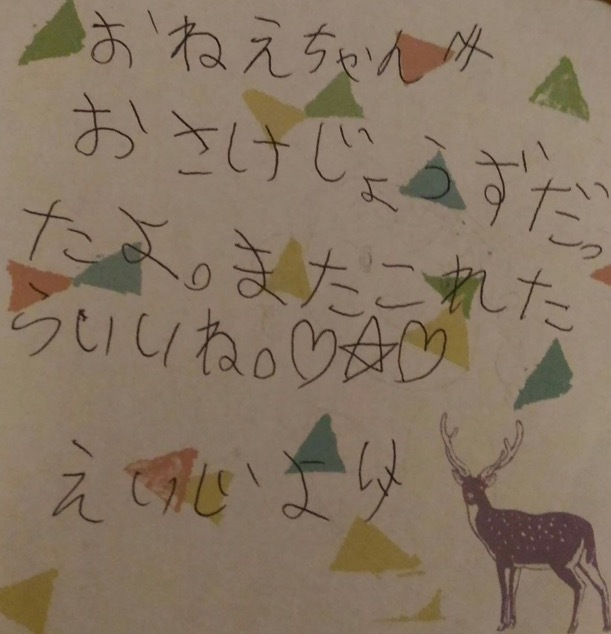 おねえちゃんへ
おさけじょうずだっ
たよ。またこれた
らいいね。♡☆♡
えいじより